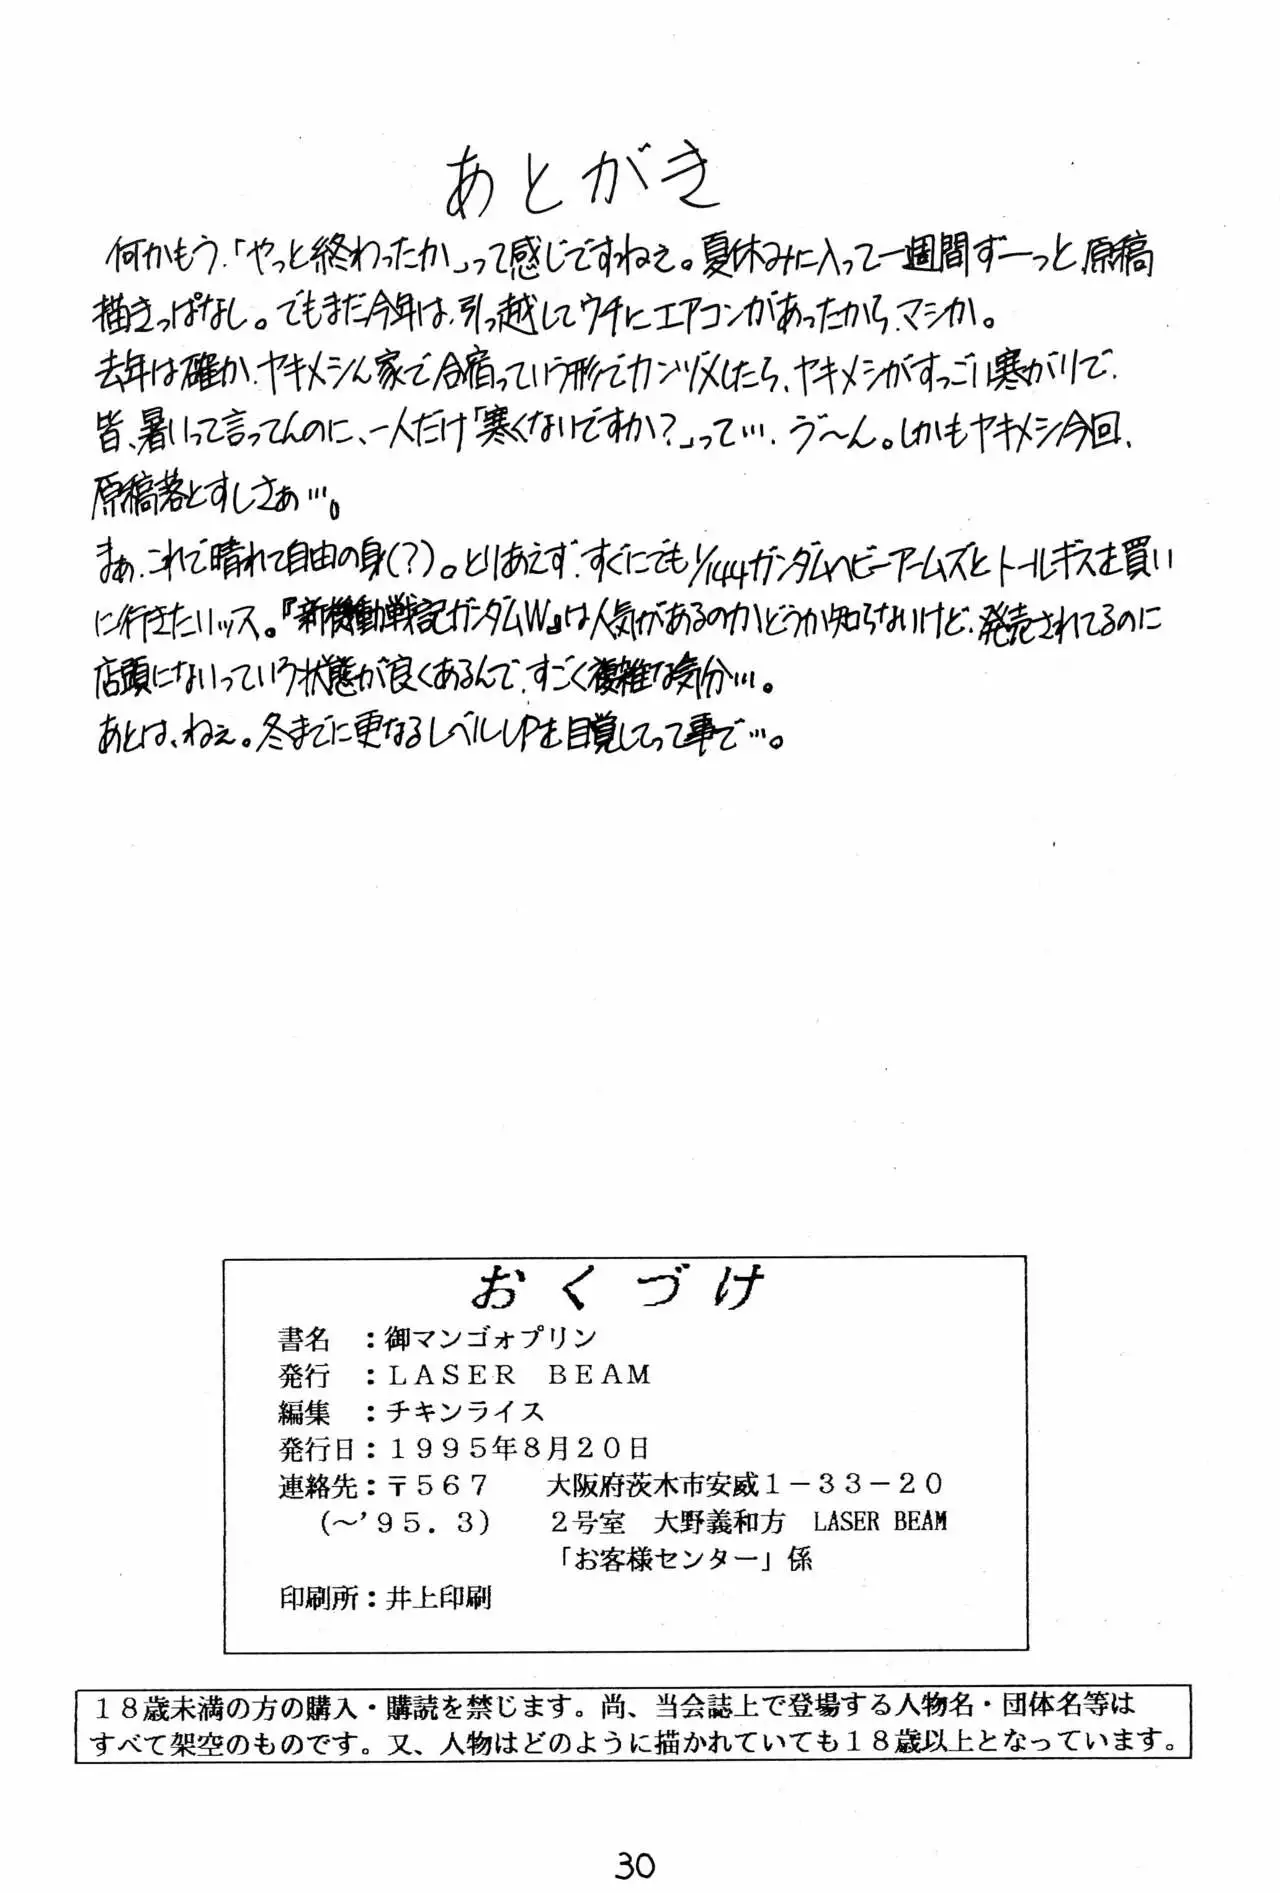 あとがき
何かもう、「やっと終わったか」って感じですねえ。夏休みに入って一週間ずーっと、原稿
描きっぱなし。でもまだ今年は、引っ越してウチにエアコンがあったから、マシか。
去年は確か、ヤキメシん家で合宿っていう形でカンヅメしたら、ヤキメシがすっごい寒がりで、
皆、暑いって言ってんのに、一人だけ「寒くないですか？」って…。う゛〜ん。しかもヤキメシ今回、
原稿落とすしさぁ…。
まぁ、これで晴れて自由の身（？）。とりあえず、すぐにでも1/144ガンダムヘビーアームズとトールギスを買い
に行きたいッス。『新機動戦記ガンダムW』は人気があるのかどうか知らないけど、発売されてるのに
店頭にないっていう状態が良くあるんで、すごく複雑な気分…。
あとは、ねぇ。冬までに更なるレベルUPを目覚してって事で…。
おくづけ
書名　：御マンゴォプリン
発行　：ＬＡＳＥＲ　ＢＥＡＭ
編集　：チキンライス
発行日：１９９５年８月２０日
連絡先：〒５６７　　大阪府茨木市安威１－３３－２０
（～’９５．３）　　２号室　大野義和方　LASER BEAM
「お客様センター」係
印刷所：井上印刷
１８歳未満の方の購入・購読を禁じます。尚、当会誌上で登場する人物名・団体名等は
すべて架空のものです。又、人物はどのように描かれていても１８歳以上となっています。
30